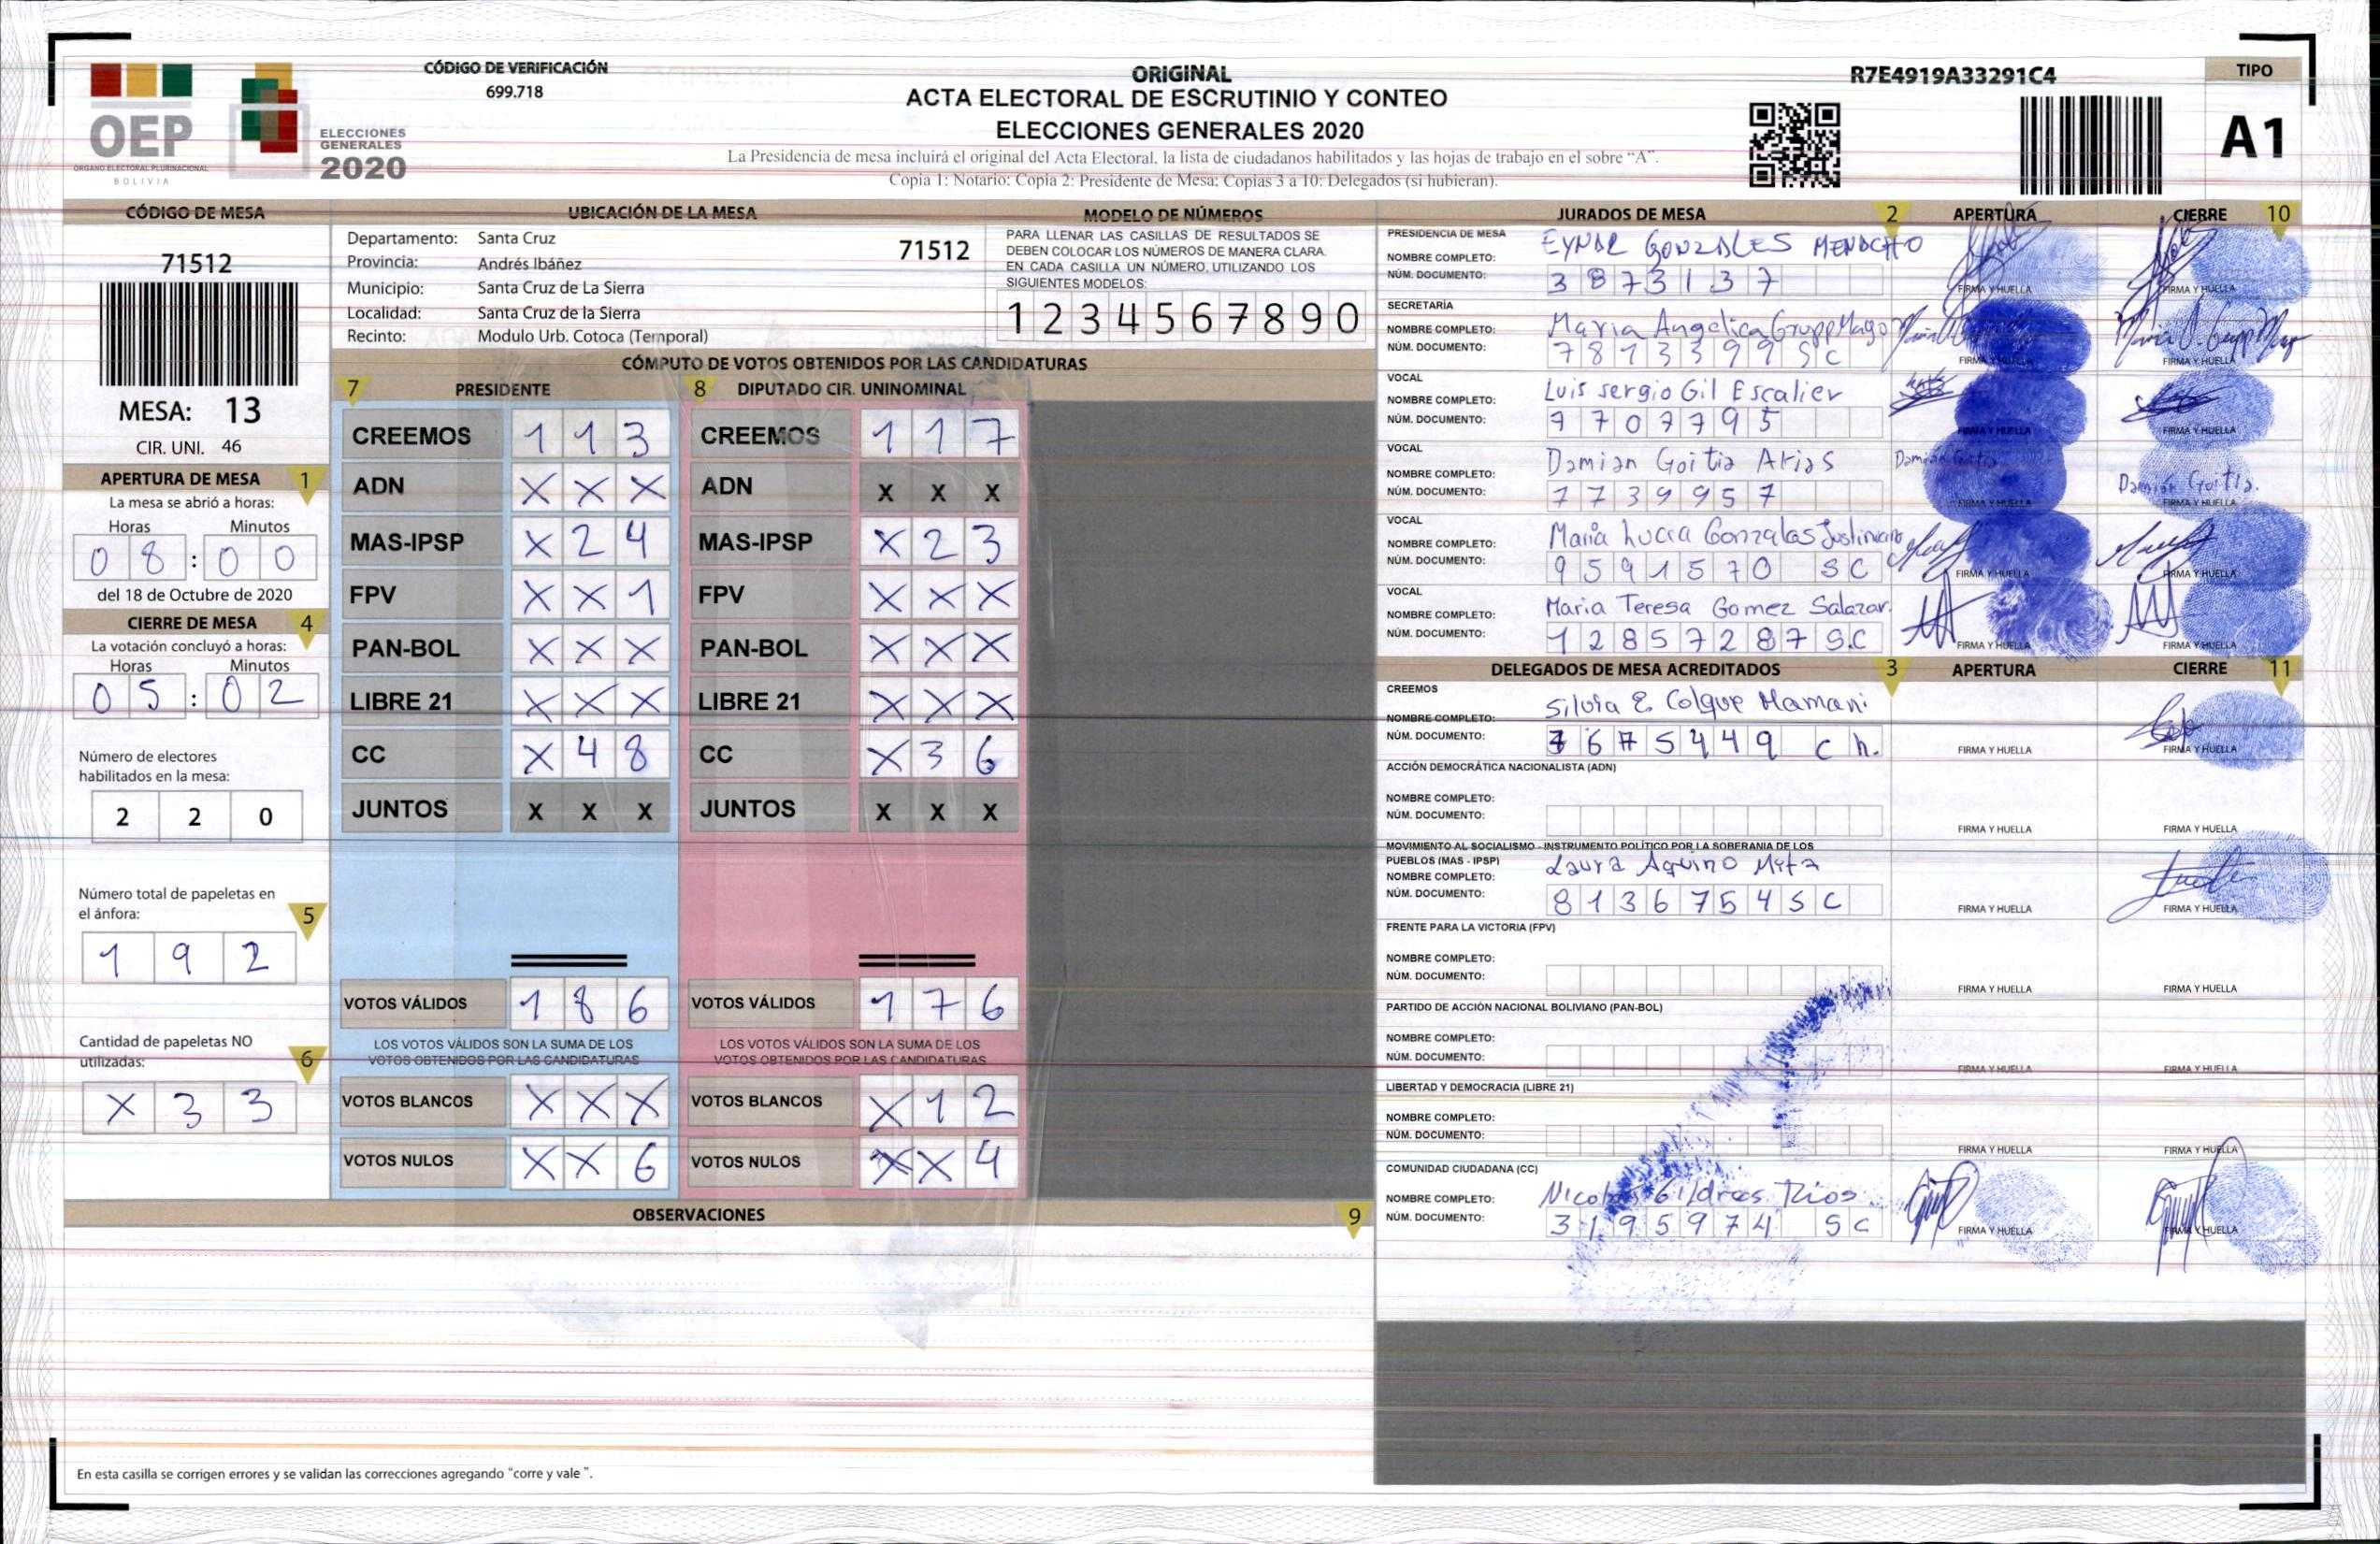 OEP
ÓRGANO ELECTORAL PLURINACIONAL
BOLIVIA
ELECCIONES
GENERALES
2020
CÓDIGO DE VERIFICACIÓN
699.718
ORIGINAL
ACTA ELECTORAL DE ESCRUTINIO Y CONTEO
ELECCIONES GENERALES 2020
La Presidencia de mesa incluirá el original del Acta Electoral, la lista de ciudadanos habilitados y las hojas de trabajo en el sobre “A”.
Copia 1: Notario: Copia 2: Presidente de Mesa: Copias 3 a 10: Delegados (si hubieran).
R7E4919A33291C4
TIPO
A1
CÓDIGO DE MESA
71512
MESA: 13
CIR. UNI. 46
APERTURA DE MESA 1
La mesa se abrió a horas:
Horas Minutos
08:00
del 18 de Octubre de 2020
CIERRE DE MESA 4
La votación concluyó a horas:
Horas Minutos
05:02
Número de electores
habilitados en la mesa:
2 2 0
Número total de papeletas en
el ánfora: 5
1 9 2
Cantidad de papeletas NO
utilizadas: 6
X 3 3
UBICACIÓN DE LA MESA
Departamento: Santa Cruz
71512
Provincia: Andrés Ibáñez
Municipio: Santa Cruz de La Sierra
Localidad: Santa Cruz de la Sierra
Recinto: Modulo Urb. Cotoca (Temporal)
MODELO DE NÚMEROS
PARA LLENAR LAS CASILLAS DE RESULTADOS SE
DEBEN COLOCAR LOS NÚMEROS DE MANERA CLARA.
EN CADA CASILLA UN NÚMERO, UTILIZANDO LOS
SIGUIENTES MODELOS:
1 2 3 4 5 6 7 8 9 0
CÓMPUTO DE VOTOS OBTENIDOS POR LAS CANDIDATURAS
7 PRESIDENTE
CREEMOS 1 1 3
ADN X X X
MAS-IPSP X 2 4
FPV X X 1
PAN-BOL X X X
LIBRE 21 X X X
CC X 4 8
JUNTOS X X X
VOTOS VÁLIDOS 1 8 6
LOS VOTOS VÁLIDOS SON LA SUMA DE LOS
VOTOS OBTENIDOS POR LAS CANDIDATURAS
VOTOS BLANCOS X X X
VOTOS NULOS X X 6
8 DIPUTADO CIR. UNINOMINAL
CREEMOS 1 1 7
ADN X X X
MAS-IPSP X 2 3
FPV X X X
PAN-BOL X X X
LIBRE 21 X X X
CC X 3 6
JUNTOS X X X
VOTOS VÁLIDOS 1 7 6
LOS VOTOS VÁLIDOS SON LA SUMA DE LOS
VOTOS OBTENIDOS POR LAS CANDIDATURAS
VOTOS BLANCOS X 1 2
VOTOS NULOS X X 4
OBSERVACIONES 9
En esta casilla se corrigen errores y se validan las correcciones agregando “corre y vale”.
JURADOS DE MESA 2 APERTURA CIERRE 10
PRESIDENCIA DE MESA
NOMBRE COMPLETO: EYNAR GONZALES MENACHO
NÚM. DOCUMENTO: 3873137
FIRMA Y HUELLA FIRMA Y HUELLA
SECRETARÍA
NOMBRE COMPLETO: Maria Angelica
NÚM. DOCUMENTO: 7813399 SC
FIRMA Y HUELLA FIRMA Y HUELLA
VOCAL
NOMBRE COMPLETO: Luis sergio Gil Escalier
NÚM. DOCUMENTO: 7707795
FIRMA Y HUELLA FIRMA Y HUELLA
VOCAL
NOMBRE COMPLETO: Damian Goitia Arias
NÚM. DOCUMENTO: 7739957
Damian Goitia Damian Goitia.
FIRMA Y HUELLA FIRMA Y HUELLA
VOCAL
NOMBRE COMPLETO: Maria Lucia Gonzalas Justiniano
NÚM. DOCUMENTO: 9591570 SC
FIRMA Y HUELLA FIRMA Y HUELLA
VOCAL
NOMBRE COMPLETO: Maria Teresa Gomez Salazar.
NÚM. DOCUMENTO: 12857287 S.C
FIRMA Y HUELLA FIRMA Y HUELLA
DELEGADOS DE MESA ACREDITADOS 3 APERTURA CIERRE 11
CREEMOS
NOMBRE COMPLETO: Silvia E. Colque Mamani
NÚM. DOCUMENTO: 7675449 ch.
FIRMA Y HUELLA FIRMA Y HUELLA
ACCIÓN DEMOCRÁTICA NACIONALISTA (ADN)
NOMBRE COMPLETO:
NÚM. DOCUMENTO:
FIRMA Y HUELLA FIRMA Y HUELLA
MOVIMIENTO AL SOCIALISMO - INSTRUMENTO POLÍTICO POR LA SOBERANIA DE LOS
PUEBLOS (MAS - IPSP)
NOMBRE COMPLETO: Laura Aquino Mita
NÚM. DOCUMENTO: 8136754 SC
FIRMA Y HUELLA FIRMA Y HUELLA
FRENTE PARA LA VICTORIA (FPV)
NOMBRE COMPLETO:
NÚM. DOCUMENTO:
FIRMA Y HUELLA FIRMA Y HUELLA
PARTIDO DE ACCIÓN NACIONAL BOLIVIANO (PAN-BOL)
NOMBRE COMPLETO:
NÚM. DOCUMENTO:
FIRMA Y HUELLA FIRMA Y HUELLA
LIBERTAD Y DEMOCRACIA (LIBRE 21)
NOMBRE COMPLETO:
NÚM. DOCUMENTO:
FIRMA Y HUELLA FIRMA Y HUELLA
COMUNIDAD CIUDADANA (CC)
NOMBRE COMPLETO: Nicolas Rios
NÚM. DOCUMENTO: 3195974 SC
FIRMA Y HUELLA FIRMA Y HUELLA